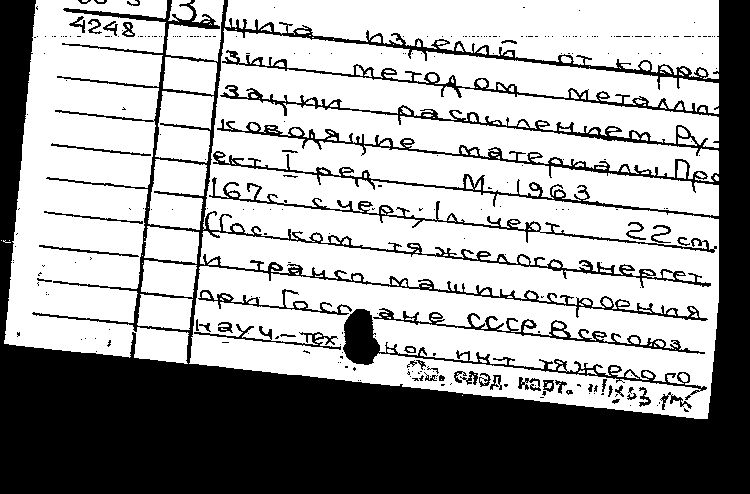 4248
Защита изделий от корро-
зии методом металли-
зации распылением. Ру-
ководящие материалы. Про
ект. I ред. М., 1963.
167с. с черт.; 1л. черт. 22 cm.
(Гос. ком. тяжелого, энергет.
и трансп. машиностроения
при Госплане СССР. Всесоюз.
науч.-тех нол. ин-т тяжелого
См. след. карт.